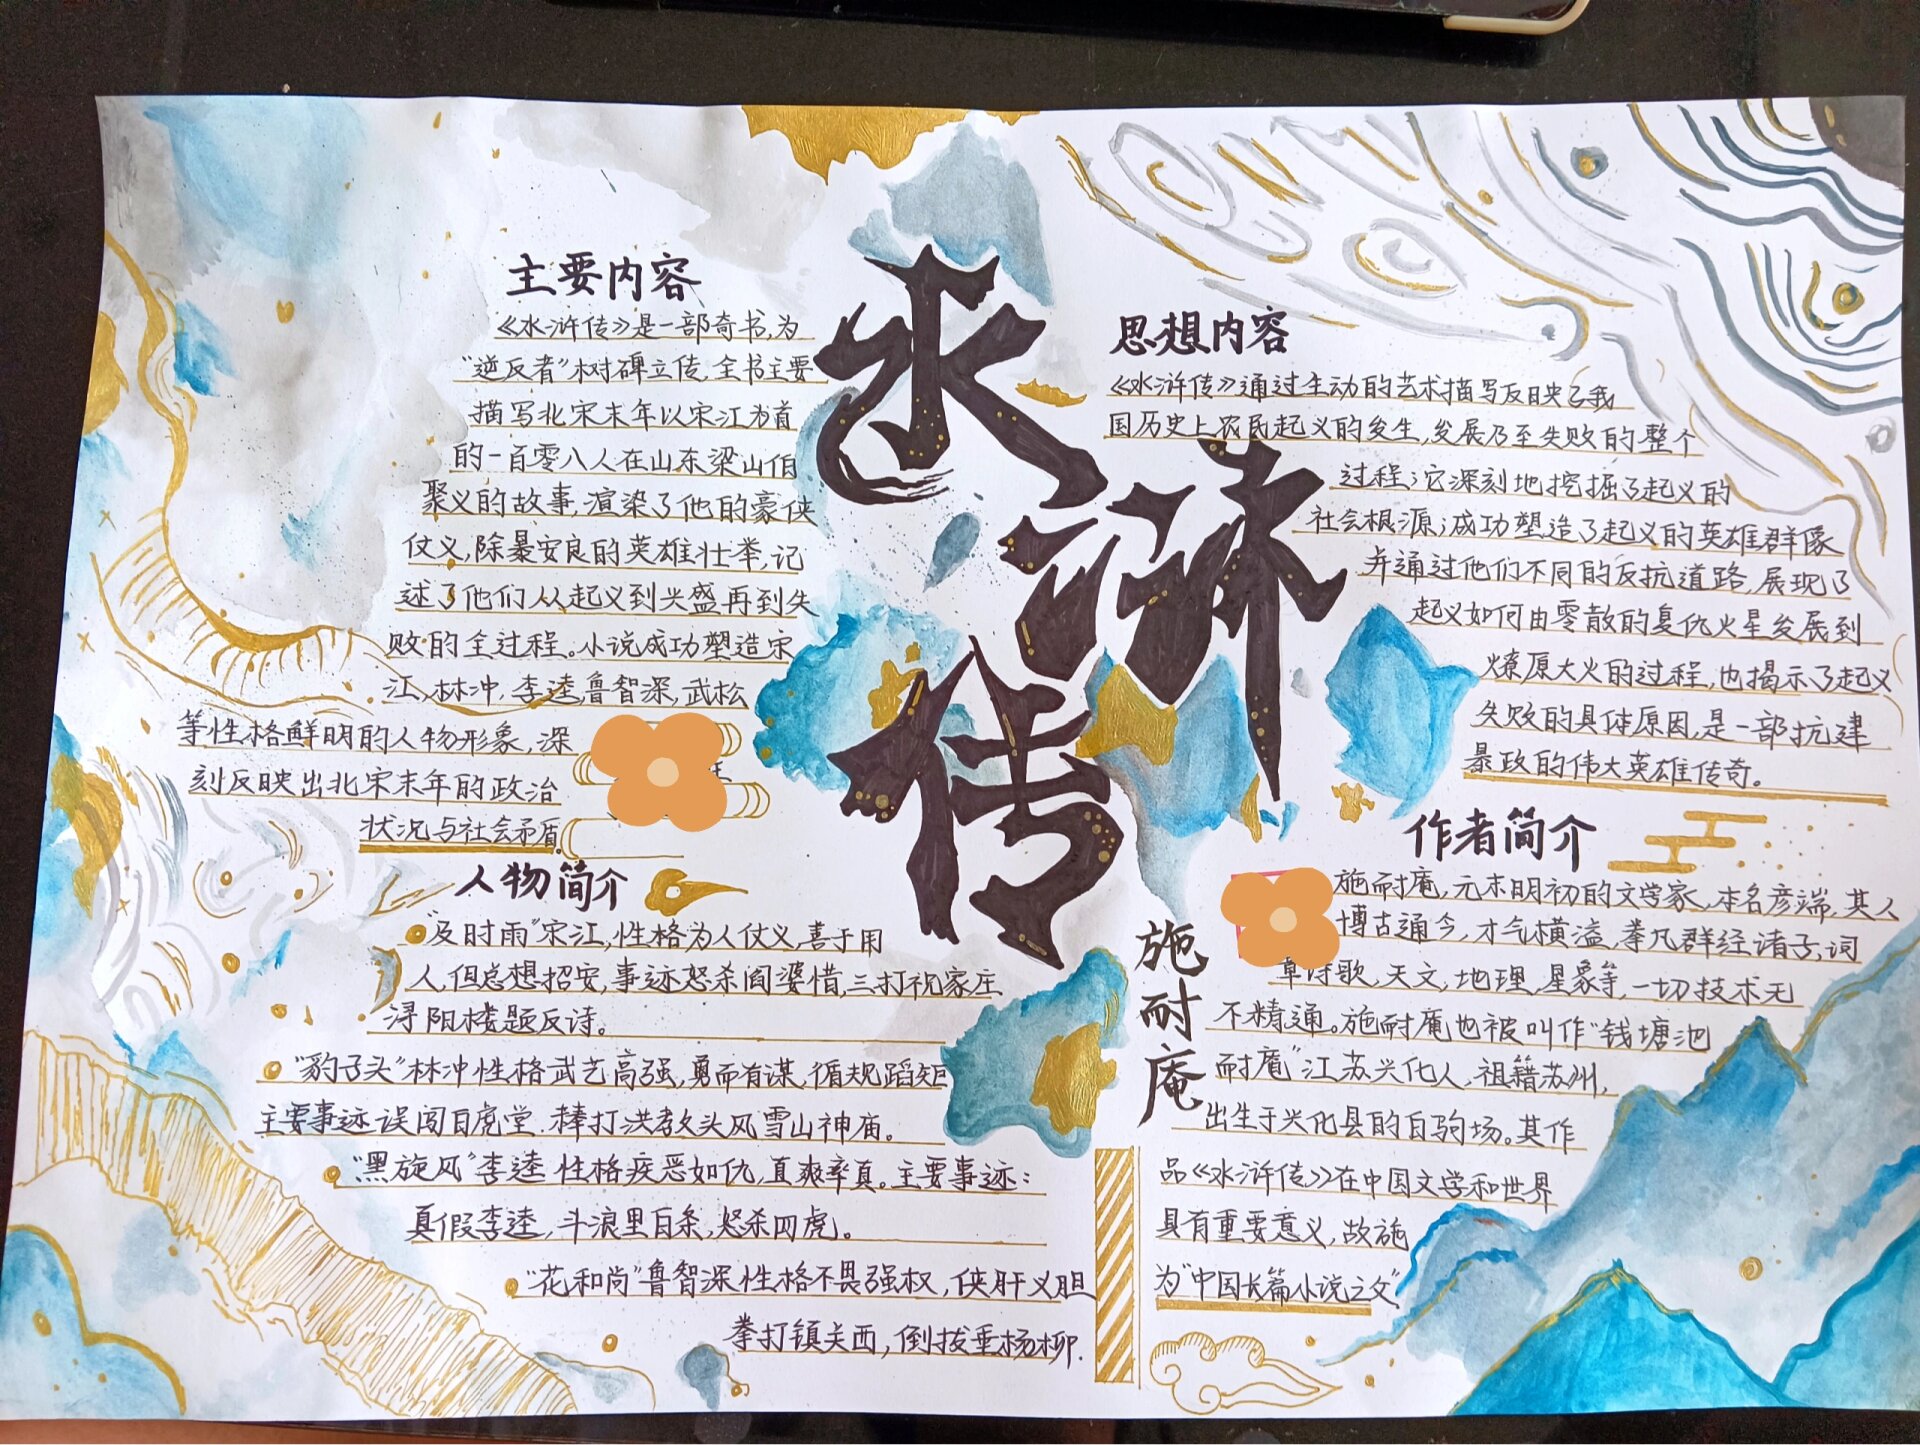 水浒传
主要内容
《水浒传》是一部奇书,为
"逆反者"树碑立传,全书主要
描写北宋末年以宋江为首
的一百零八人在山东梁山伯
聚义的故事,渲染了他的豪侠
仗义,除暴安良的英雄壮举,记
述了他们从起义到兴盛再到失
败的全过程。小说成功塑造宋
江,林冲,李逵,鲁智深,武松
等性格鲜明的人物形象,深
刻反映出北宋末年的政治
状况与社会矛盾。
人物简介
"及时雨"宋江,性格为人仗义,善于用
人,但总想招安,事迹怒杀阎婆惜,三打祝家庄
浔阳楼题反诗。
"豹子头"林冲性格武艺高强,勇而有谋,循规蹈矩
主要事迹误闯白虎堂.棒打洪教头风雪山神庙。
"黑旋风"李逵性格疾恶如仇,直爽率真。主要事迹:
真假李逵,斗浪里白条,怒杀四虎。
"花和尚"鲁智深性格不畏强权,侠肝义胆
拳打镇关西,倒拔垂杨柳.
思想内容
《水浒传》通过生动的艺术描写反映了我
国历史上农民起义的发生,发展乃至失败的整个
过程;它深刻地挖掘了起义的
社会根源;成功塑造了起义的英雄群像
并通过他们不同的反抗道路,展现了
起义如何由零散的复仇火星发展到
燎原大火的过程,也揭示了起义
失败的具体原因,是一部抗建
暴政的伟大英雄传奇。
作者简介
施耐庵
施耐庵,元末明初的文学家,本名彦端,其人
博古通今,才气横溢,拳凡群经诸子,词
章诗歌,天文,地理,星象等,一切技术无
不精通。施耐庵也被叫作"钱塘池
耐庵"江苏兴化人,祖籍苏州,
出生于兴化县的白驹场。其作
品《水浒传》在中国文学和世界
具有重要意义,故施
为"中国长篇小说之父"